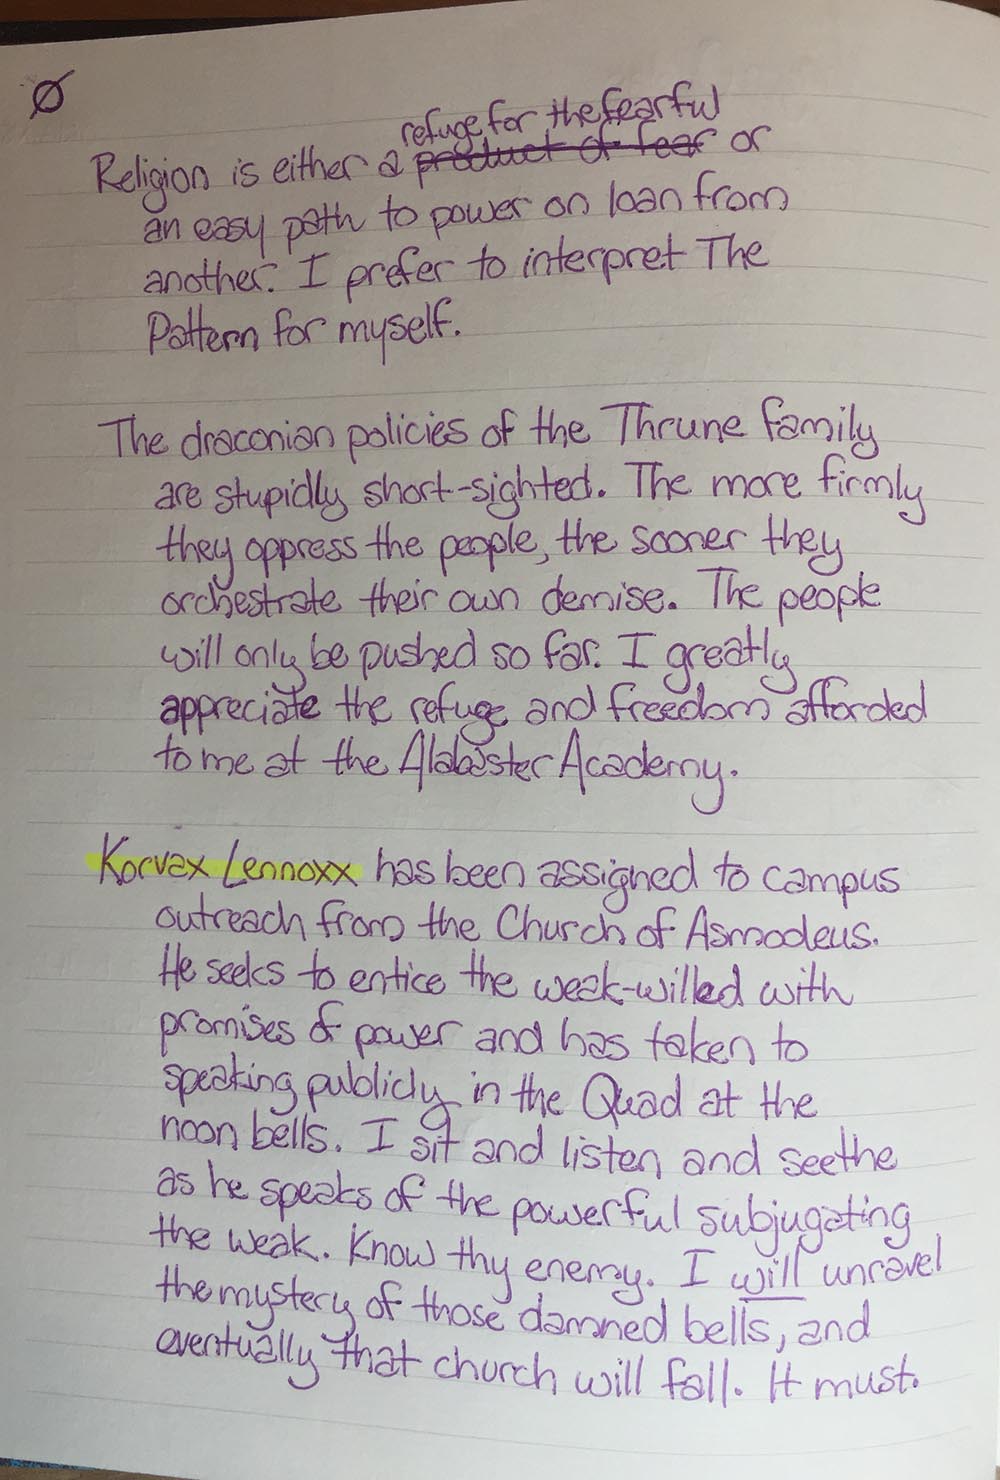 Ø
refuge for the fearful
Religion is either a product of fear or
an easy path to power on loan from
another. I prefer to interpret The
Pattern for myself.
The draconian policies of the Thrune family
are stupidly short-sighted. The more firmly
they oppress the people, the sooner they
orchestrate their own demise. The people
will only be pushed so far. I greatly
appreciate the refuge and freedom afforded
to me at the Alabaster Academy.
Korvax Lennoxx has been assigned to campus
outreach from the Church of Asmodeus.
He seeks to entice the weak-willed with
promises of power and has taken to
speaking publicly in the Quad at the
noon bells. I sit and listen and seethe
as he speaks of the powerful subjugating
the weak. Know thy enemy. I will unravel
the mystery of those damned bells, and
eventually that church will fall. It must.